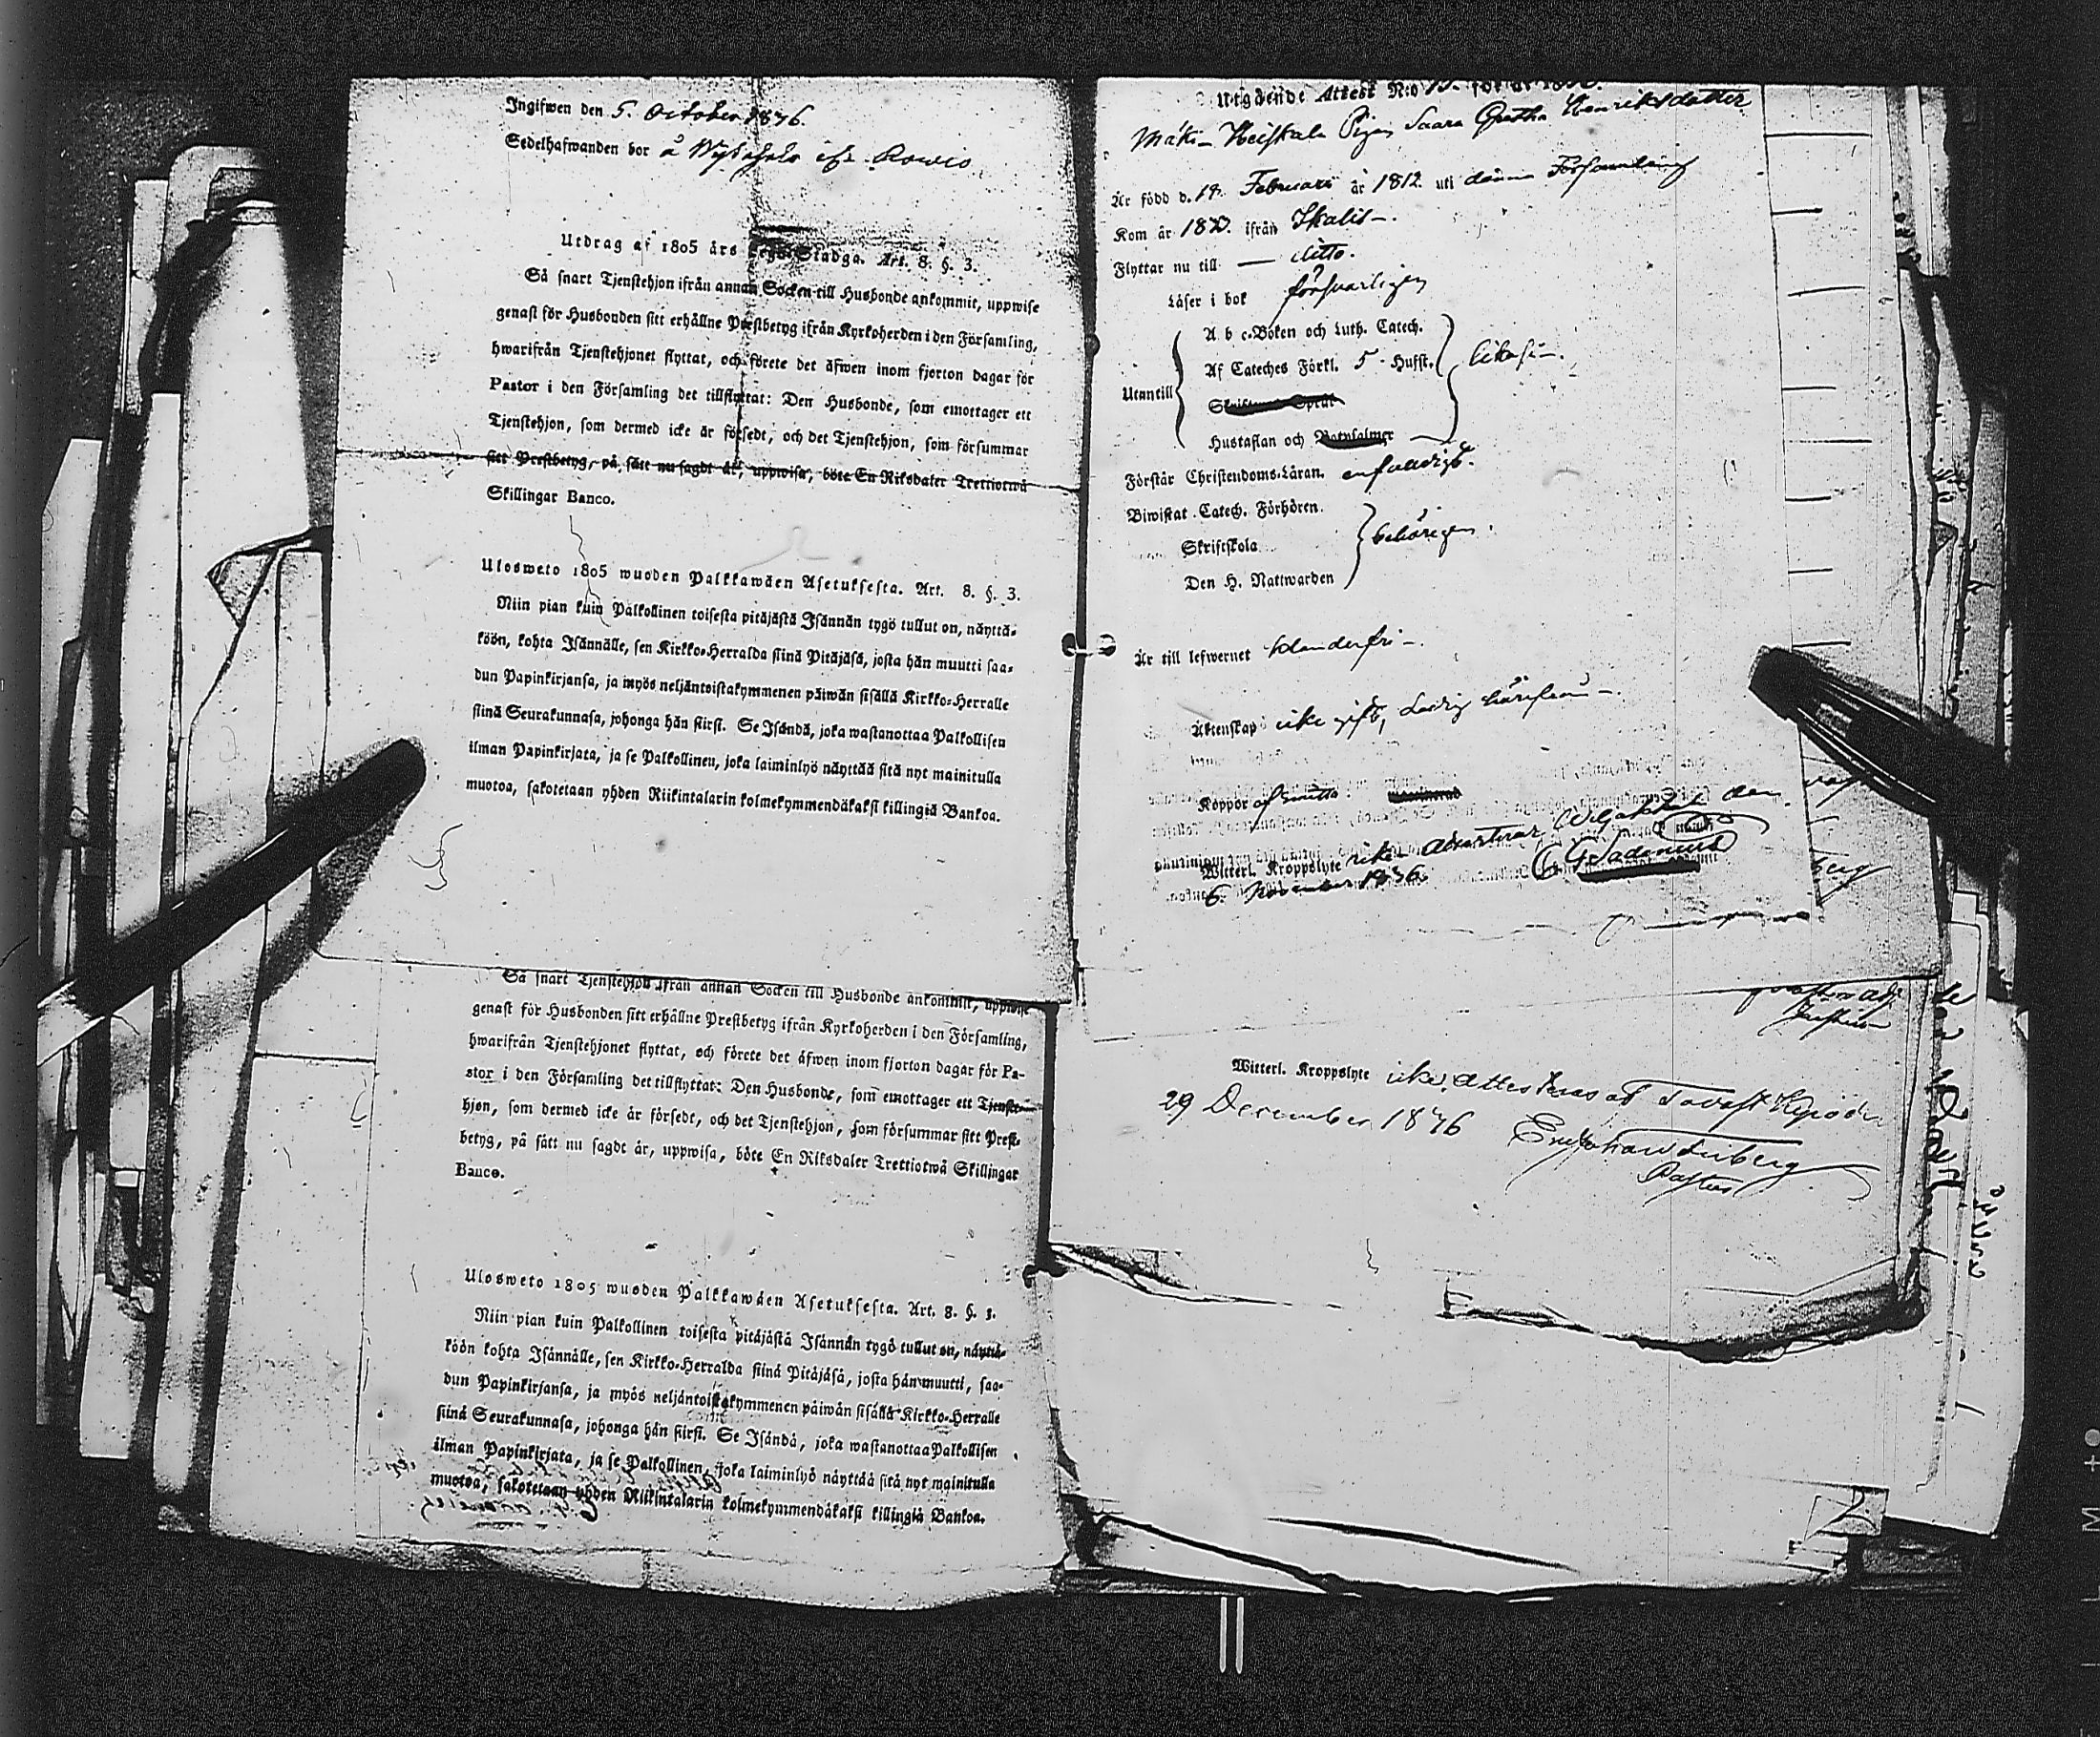 Ingifwen den 5. October 1836.
Sedelhafwanden bor å
Utdrag af 1805 års Lego-Stadga. Art. 8. §. 3.
Så snart Tjenstehjon ifrån annan Socken till Husbonde ankommit, uppwise
genast för Husbonden sitt erhållne Prestbetyg ifrån Kyrkoherden i den Församling,
hwarifrån Tjenstehjonet flyttat, och förete det äfwen inom fjorton dagar för
Pastor i den Församling det tillflyttat: Den Husbonde, som emottager ett
Tjenstehjon, som dermed icke är försedt, och det Tjenstehjon, som försummar
sitt Prestbetyg, på sätt nu sagdt är, uppwisa, böte En Riksdaler Trettiotwå
Skillingar Banco.
Ulosweto 1805 wuoden Palkkawäen Asetuksesta. Art. 8. §. 3.
Niin pian kuin Palkollinen toisesta pitäjästä Isännän tygö tullut on, näyttä-
köön, kohta Isännälle, sen Kirkko-Herralda siinä Pitäjäsä, josta hän muutti saa-
dun Papinkirjansa, ja myös neljäntoistakymmenen päiwän sisällä Kirkko-Herralle
siinä Seurakunnasa, johonga hän siirsi. Se Isändä, joka wastanottaa Palkollisen
ilman Papinkirjata, ja se Palkollinen, joka laiminlyö näyttää sitä nyt mainitulla
muotoa, sakotetaan yhden Riikintalarin kolmekymmendäkaksi killingiä Bankoa.
Så snart Tjenstehjon ifrån annan Socken till Husbonde ankommit, uppwise
genast för Husbonden sitt erhållne Prestbetyg ifrån Kyrkoherden i den Församling,
hwarifrån Tjenstehjonet flyttat, och förete det äfwen inom fjorton dagar för Pa-
stor i den Församling det tillflyttat: Den Husbonde, som emottager ett Tjenste-
hjon, som dermed icke är försedt, och det Tjenstehjon, som försummar sitt Prest-
betyg, på sätt nu sagdt är, uppwisa, böte En Riksdaler Trettiotwå Skillingar
Banco.
Ulosweto 1805 wuoden Palkkawäen Asetuksesta. Art. 8. §. 3.
Niin pian kuin Palkollinen toisesta pitäjästä Isännän tygö tullut on, näyttä-
köön kohta Isännälle, sen Kirkko-Herralda siinä Pitäjäsä, josta hän muutti, saa-
dun Papinkirjansa, ja myös neljäntoistakymmenen päiwän sisällä Kirkko-Herralle
siinä Seurakunnasa, johonga hän siirsi. Se Isändä, joka wastanottaa Palkollisen
ilman Papinkirjata, ja se Palkollinen, joka laiminlyö näyttää sitä nyt mainitulla
muotoa, sakotetaan yhden Riikintalarin kolmekymmendäkaksi killingiä Bankoa.
Utgående Attest N:o
Mäki- Heiskala Pigan Saara Greta Henriksdotter
Är född d. 17. Februari år 1812. uti denna Församling
Kom år ifrån Ikalis
Flyttar nu till — ditto.
Läser i bok försvarligen
A. b c-Boken och Luth. Catech.
Af Cateches Förkl. 5 Hufst. likaså
Utantill
Hustaflan och Botpsalmer
Förstår Christendoms-Läran. enfaldigt.
Biwistat Catech. Förhören.
Skriftskola behörigen.
Den H. Nattwarden
Är till lefwernet klanderfri
Äktenskap icke gift, Ledig härifrån
Koppor af smitta
Witterl. Kroppslyte icke Attesterar, Wiljakkala den
6 November 1836.
Witterl. Kroppslyte icke, attesteras af Tavast Kyrö den
29 December 1836
Pastor